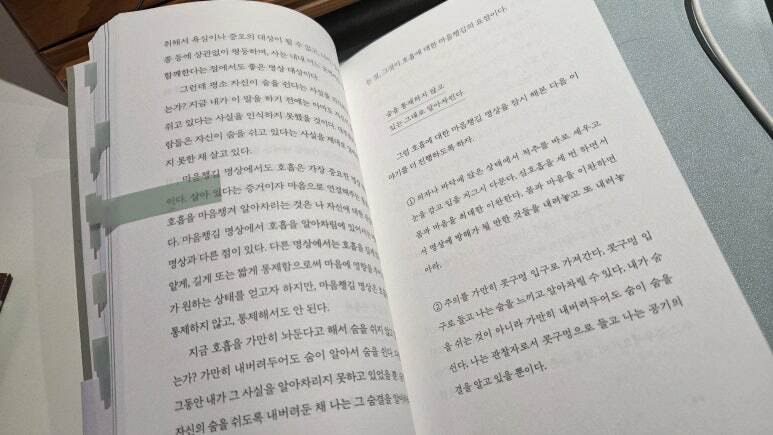 취해서 욕심이나 증오의 대상이 될 수 없고,
종 등에 상관없이 평등하며, 사는 내내 어느
함께한다는 점에서도 좋은 명상 대상이다.
그런데 평소 자신이 숨을 쉰다는 사실을
는가? 지금 내가 이 말을 하기 전에는 아마도
쉬고 있다는 사실을 인식하지 못했을 것이다.
람들은 자신이 숨을 쉬고 있다는 사실을 제대로
지 못한 채 살고 있다.
마음챙김 명상에서도 호흡은 가장 중요한 명상
이다. 살아 있다는 증거이자 마음으로 연결해주는
호흡을 마음챙겨 알아차리는 것은 나 자신에 대한
다. 마음챙김 명상에서 호흡을 알아차림에 있어
명상과 다른 점이 있다. 다른 명상에서는 호흡을
얕게, 길게 또는 짧게 통제함으로써 마음에 영향을
가 원하는 상태를 얻고자 하지만, 마음챙김 명상은
통제하지 않고, 통제해서도 안 된다.
지금 호흡을 가만히 놔둔다고 해서 숨을 쉬지
는가? 가만히 내버려두어도 숨이 알아서 숨을 쉰다.
그동안 내가 그 사실을 알아차리지 못하고 있었을 뿐
자신의 숨을 쉬도록 내버려둔 채 나는 그 숨결을
는 것, 그것이 호흡에 대한 마음챙김의 요점이다.
숨을 통제하지 않고
있는 그대로 알아차린다.
그럼 호흡에 대한 마음챙김 명상을 잠시 해본 다음 이
야기를 더 진행하도록 하자.
① 의자나 바닥에 앉은 상태에서 척추를 바로 세우고
눈을 감고 입을 지그시 다문다. 심호흡을 세 번 하면서
몸과 마음을 최대한 이완한다. 몸과 마음을 이완하면
서 명상에 방해가 될 만한 것들을 내려놓고 또 내려놓
아라.
② 주의를 가만히 콧구멍 입구로 가져간다. 콧구멍 입
구로 들고 나는 숨을 느끼고 알아차릴 수 있다. 내가 숨
을 쉬는 것이 아니라 가만히 내버려두어도 숨이 숨을
쉰다. 나는 관찰자로서 콧구멍으로 들고 나는 공기의
결을 알고 있을 뿐이다.